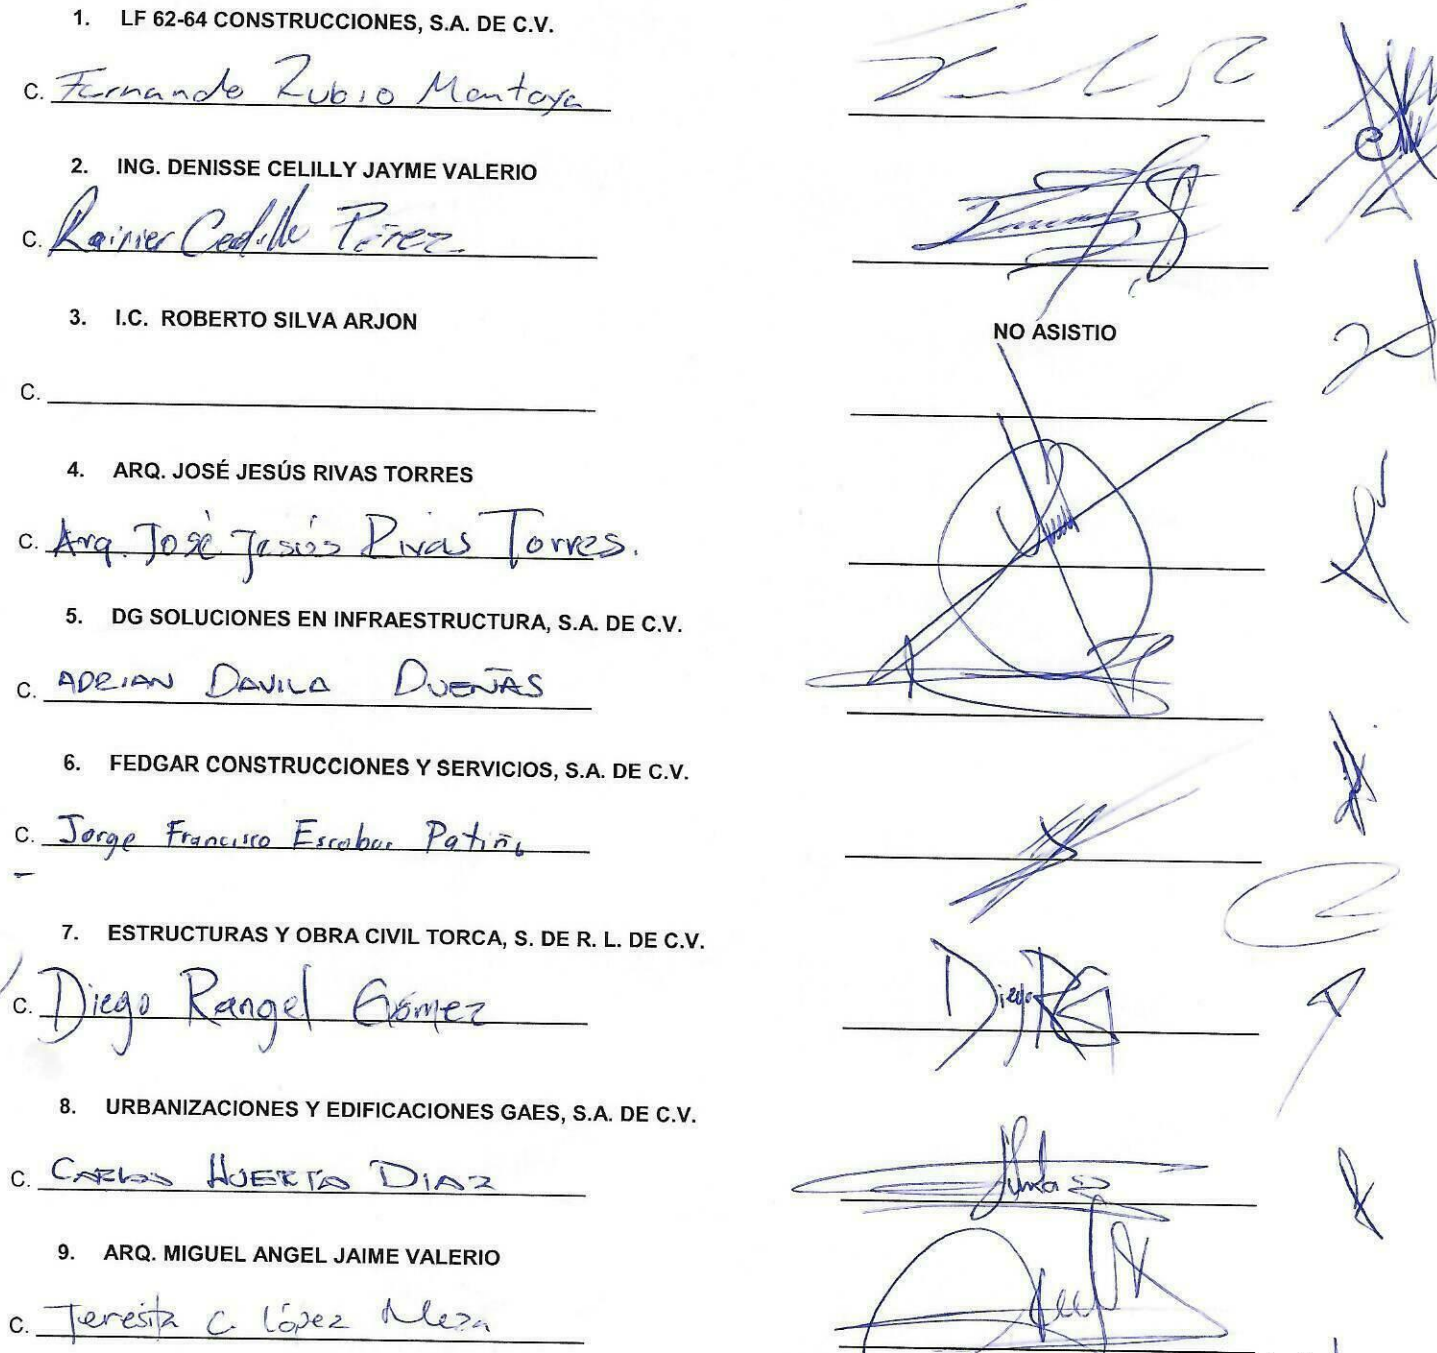 1. LF 62-64 CONSTRUCCIONES, S.A. DE C.V.
C. Fernando Rubio Montoya
2. ING. DENISSE CELILLY JAYME VALERIO
C. Rainier Cedillo Pérez.
3. I.C. ROBERTO SILVA ARJON
NO ASISTIO
C.
4. ARQ. JOSÉ JESÚS RIVAS TORRES
C. Arq. José Jesús Rivas Torres.
5. DG SOLUCIONES EN INFRAESTRUCTURA, S.A. DE C.V.
C. ADRIAN DAVILA DUEÑAS
6. FEDGAR CONSTRUCCIONES Y SERVICIOS, S.A. DE C.V.
C. Jorge Francisco Escobar Patiño
7. ESTRUCTURAS Y OBRA CIVIL TORCA, S. DE R. L. DE C.V.
C. Diego Rangel Gómez
Diego RG
8. URBANIZACIONES Y EDIFICACIONES GAES, S.A. DE C.V.
C. CARLOS HUERTA DIAZ
9. ARQ. MIGUEL ANGEL JAIME VALERIO
C. Teresita C. López Meza